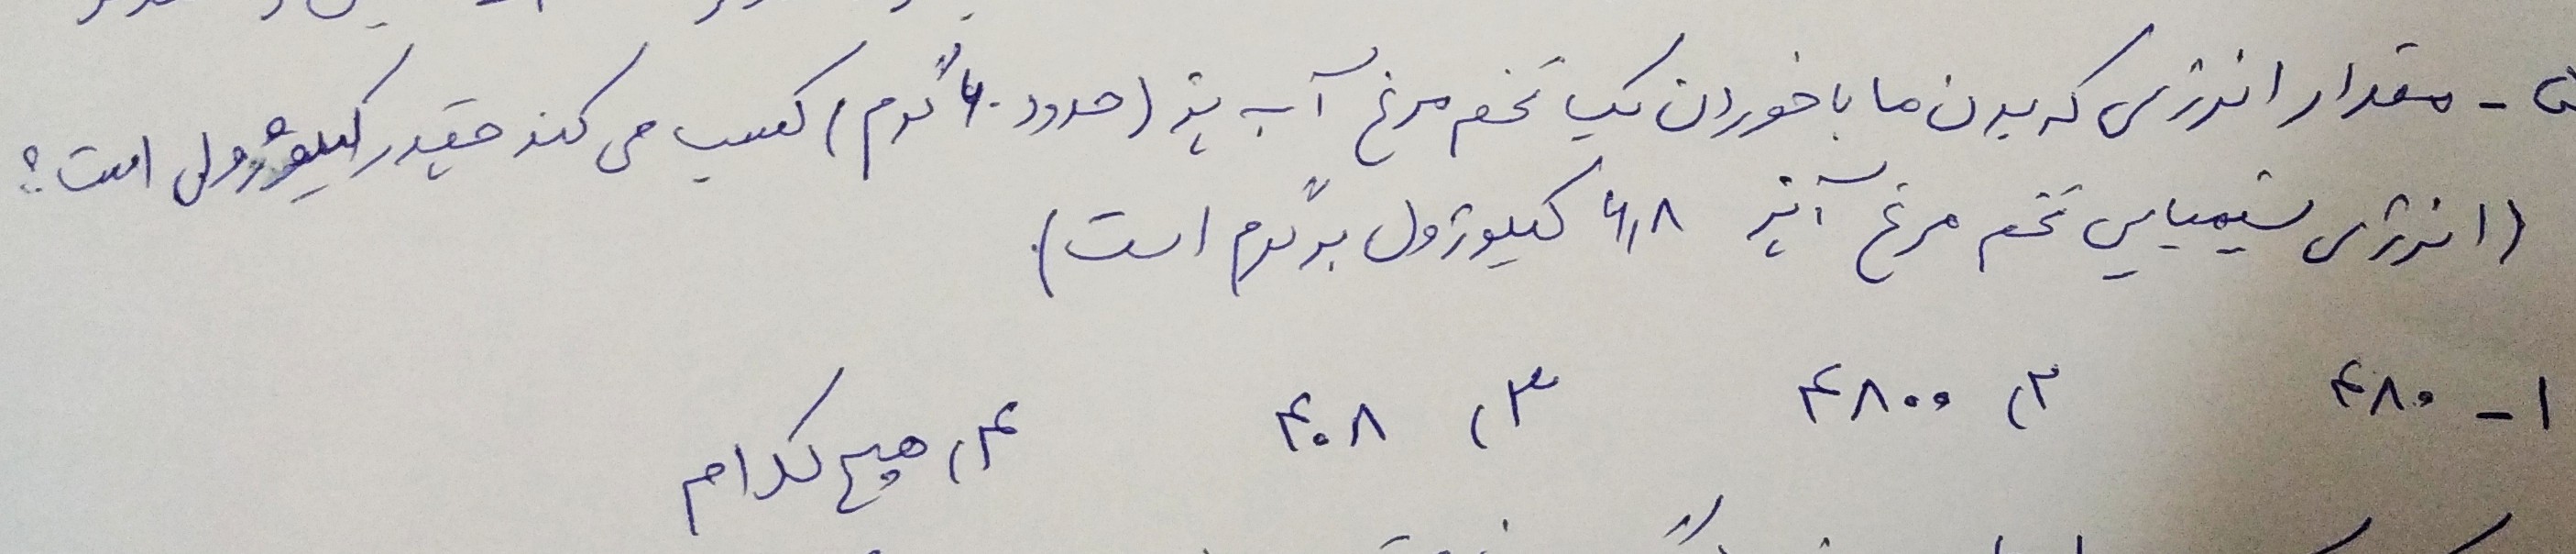 ۵- مقدار انرژی که بدن ما با خوردن یک تخم مرغ آب پز (حدود ۶۰ گرم) کسب می کند چقدر کیلوژول است؟
(انرژی شیمیایی تخم مرغ آبپز ۶٫۸ کیلوژول بر گرم است).
۱- ۴۸۰ ۲) ۴۸۰۰ ۳) ۴۰۸ ۴) هیچ کدام